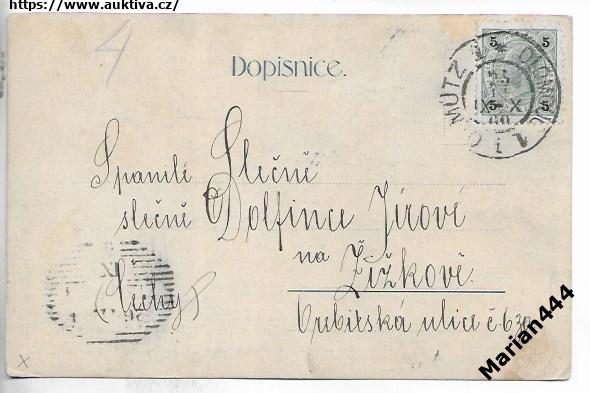 https://www.auktiva.cz/
4
Dopisnice.
5 5
5 5
OLMÜTZ 1 * OLOMOUC 1
IX-X
Slečně
Spanilé
slečně Dolfince Jírové
na
Žižkově.
(Čechy)
Orebitská ulice č. 630
x
Marian444